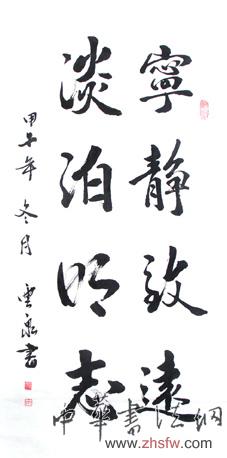 寧静致遠
淡泊明志
甲午年 冬月 雲泉書
中華書法網
www.zhsfw.com